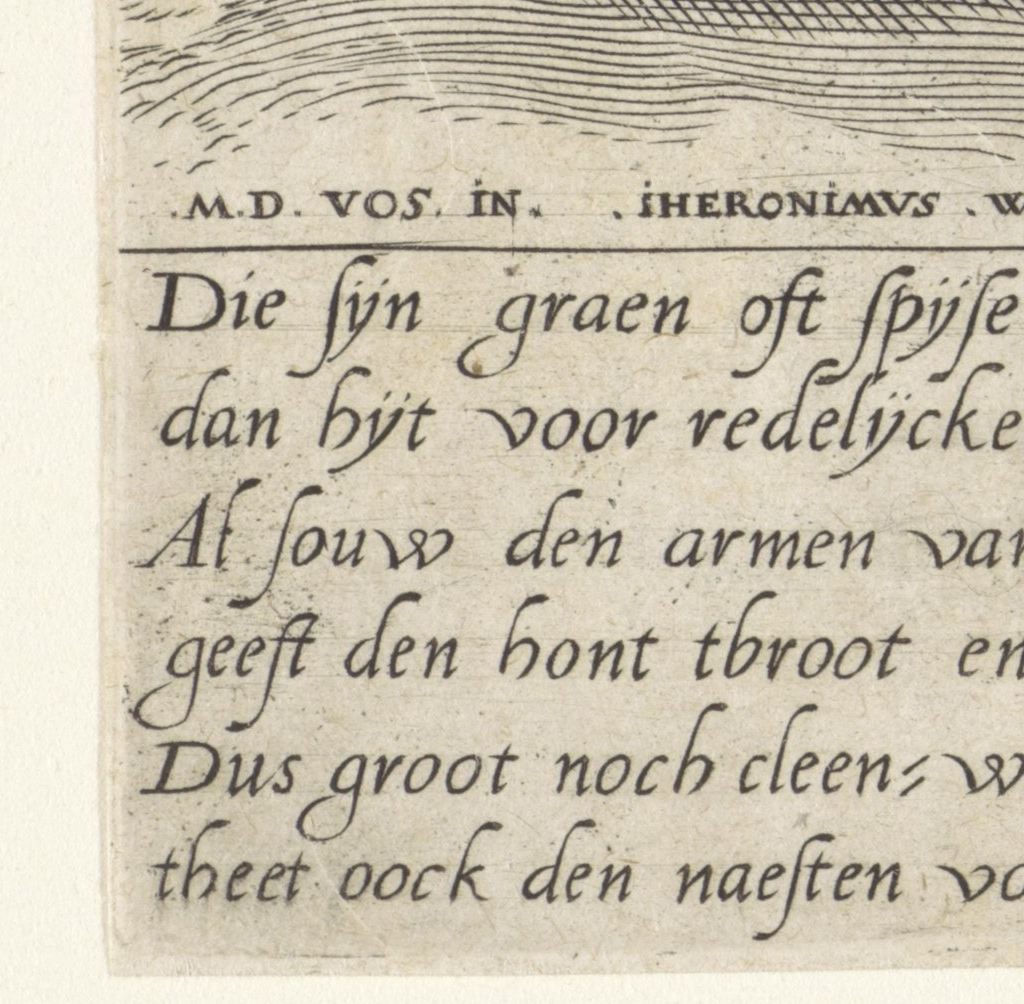 .M.D. VOS. IN. .IHERONIMVS . W
Die ſijn graen oft ſpijſe
dan hijt voor redelijcke
Al ſouw den armen van
geeft den hont tbroot en
Dus groot noch cleen⸗ w
theet oock den naeſten vo